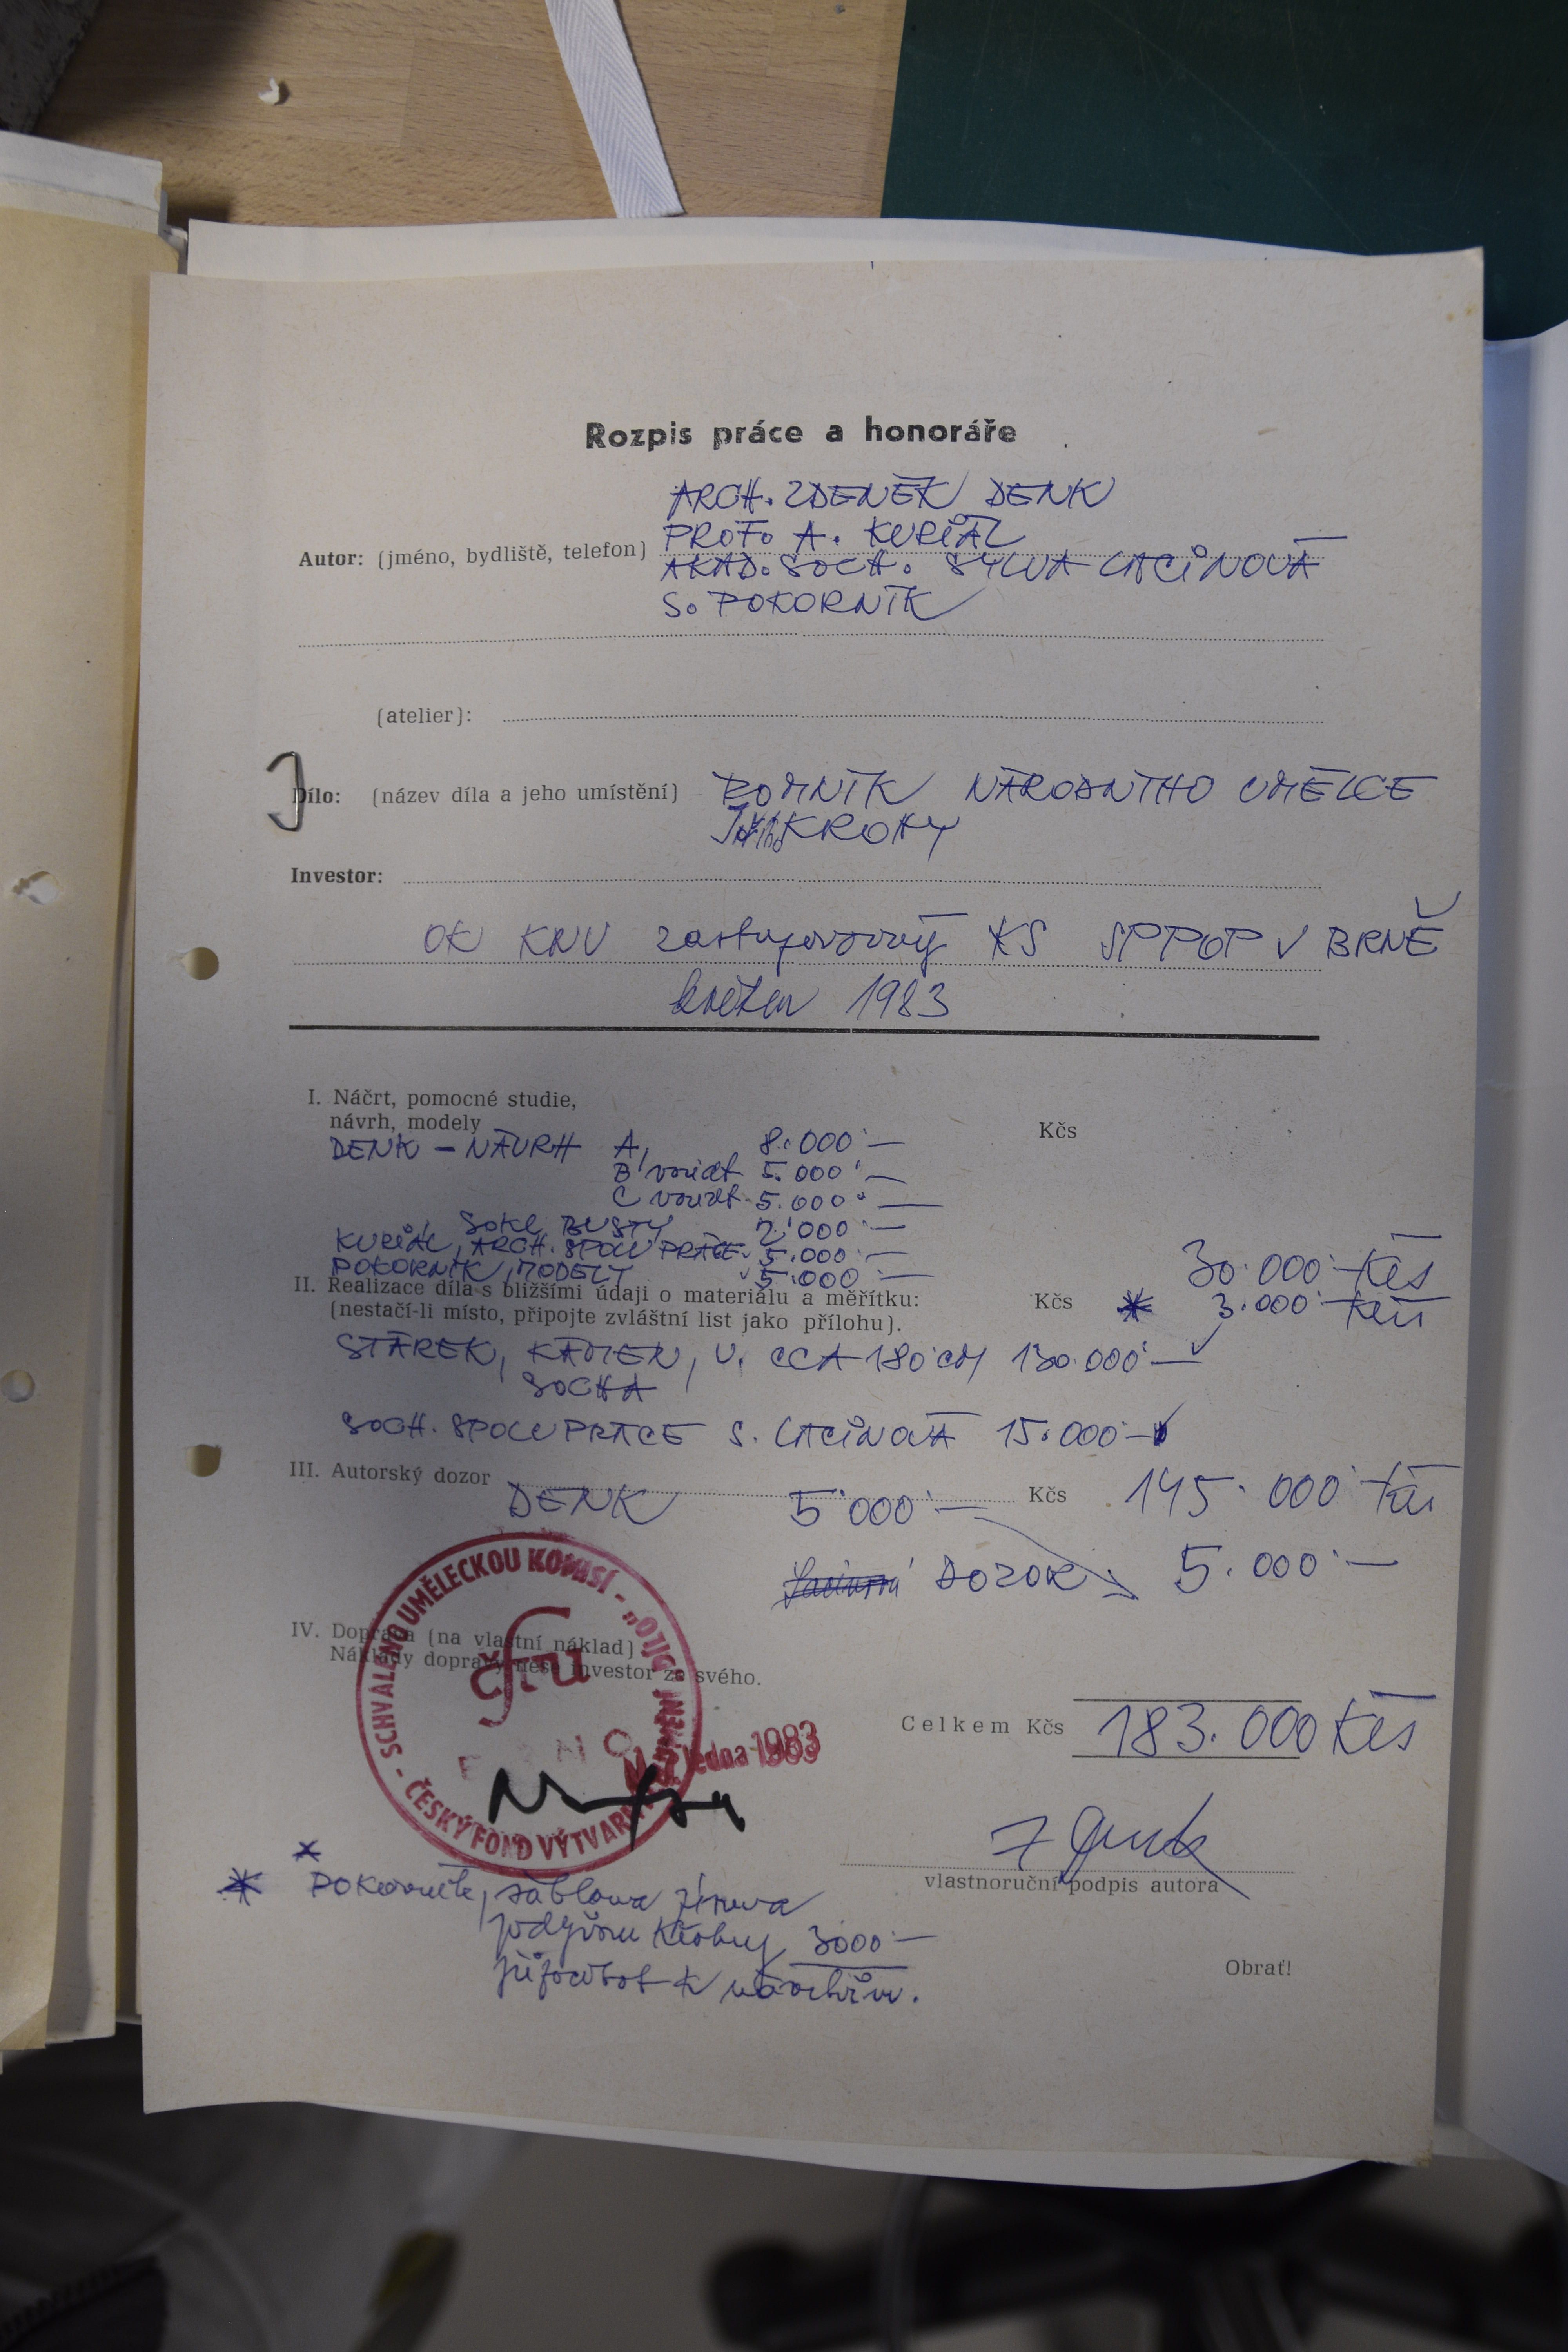 Rozpis práce a honoráře
ARCH. ZDENĚK DENK
PROF. A. KURIÁL
Autor: (jméno, bydliště, telefon)
AKAD. SOCH. SYLVA LACINOVÁ
S. POKORNÍK
(atelier):
Dílo: (název díla a jeho umístění) POMNÍK NÁRODNÍHO UMĚLCE
KROHY
Investor:
OK KNV zastupovaný KS SPPOP V BRNĚ
květen 1983
I. Náčrt, pomocné studie,
návrh, modely Kčs
DENK - NÁVRH A, 8.000.—
B variat 5.000.—
C variat 5.000.—
SOKL BUSTY 2.000.—
KURIÁL, ARCH. SPOLUPRÁCE 5.000.—
POKORNÍK, MODELY 5.000.— 30.000 Kčs
II. Realizace díla s bližšími údaji o materiálu a měřítku: Kčs * 3.000 Kčs
(nestačí-li místo, připojte zvláštní list jako přílohu).
STÁREK, KÁMEN, V. CCA 180 CM 130.000.—
SOCHA
SOCH. SPOLUPRÁCE S. LACINOVÁ 15.000.—
III. Autorský dozor Kčs 145.000 Kčs
DENK 5.000.—
DOZOR 5.000.—
IV. Doprava (na vlastní náklad)
Náklady dopravy nese investor ze svého.
SCHVALENO UMĚLECKOU KOMISÍ - „DÍLO"
ČESKÝ FOND VÝTVARNÝCH UMĚNÍ -
čfvu
BRNO
1983
Celkem Kčs 183.000 Kčs
vlastnoruční podpis autora
* Pokorník, šablona písma
podpisu Krohy 3000.—
připočítat k návrhům.
Obrať!